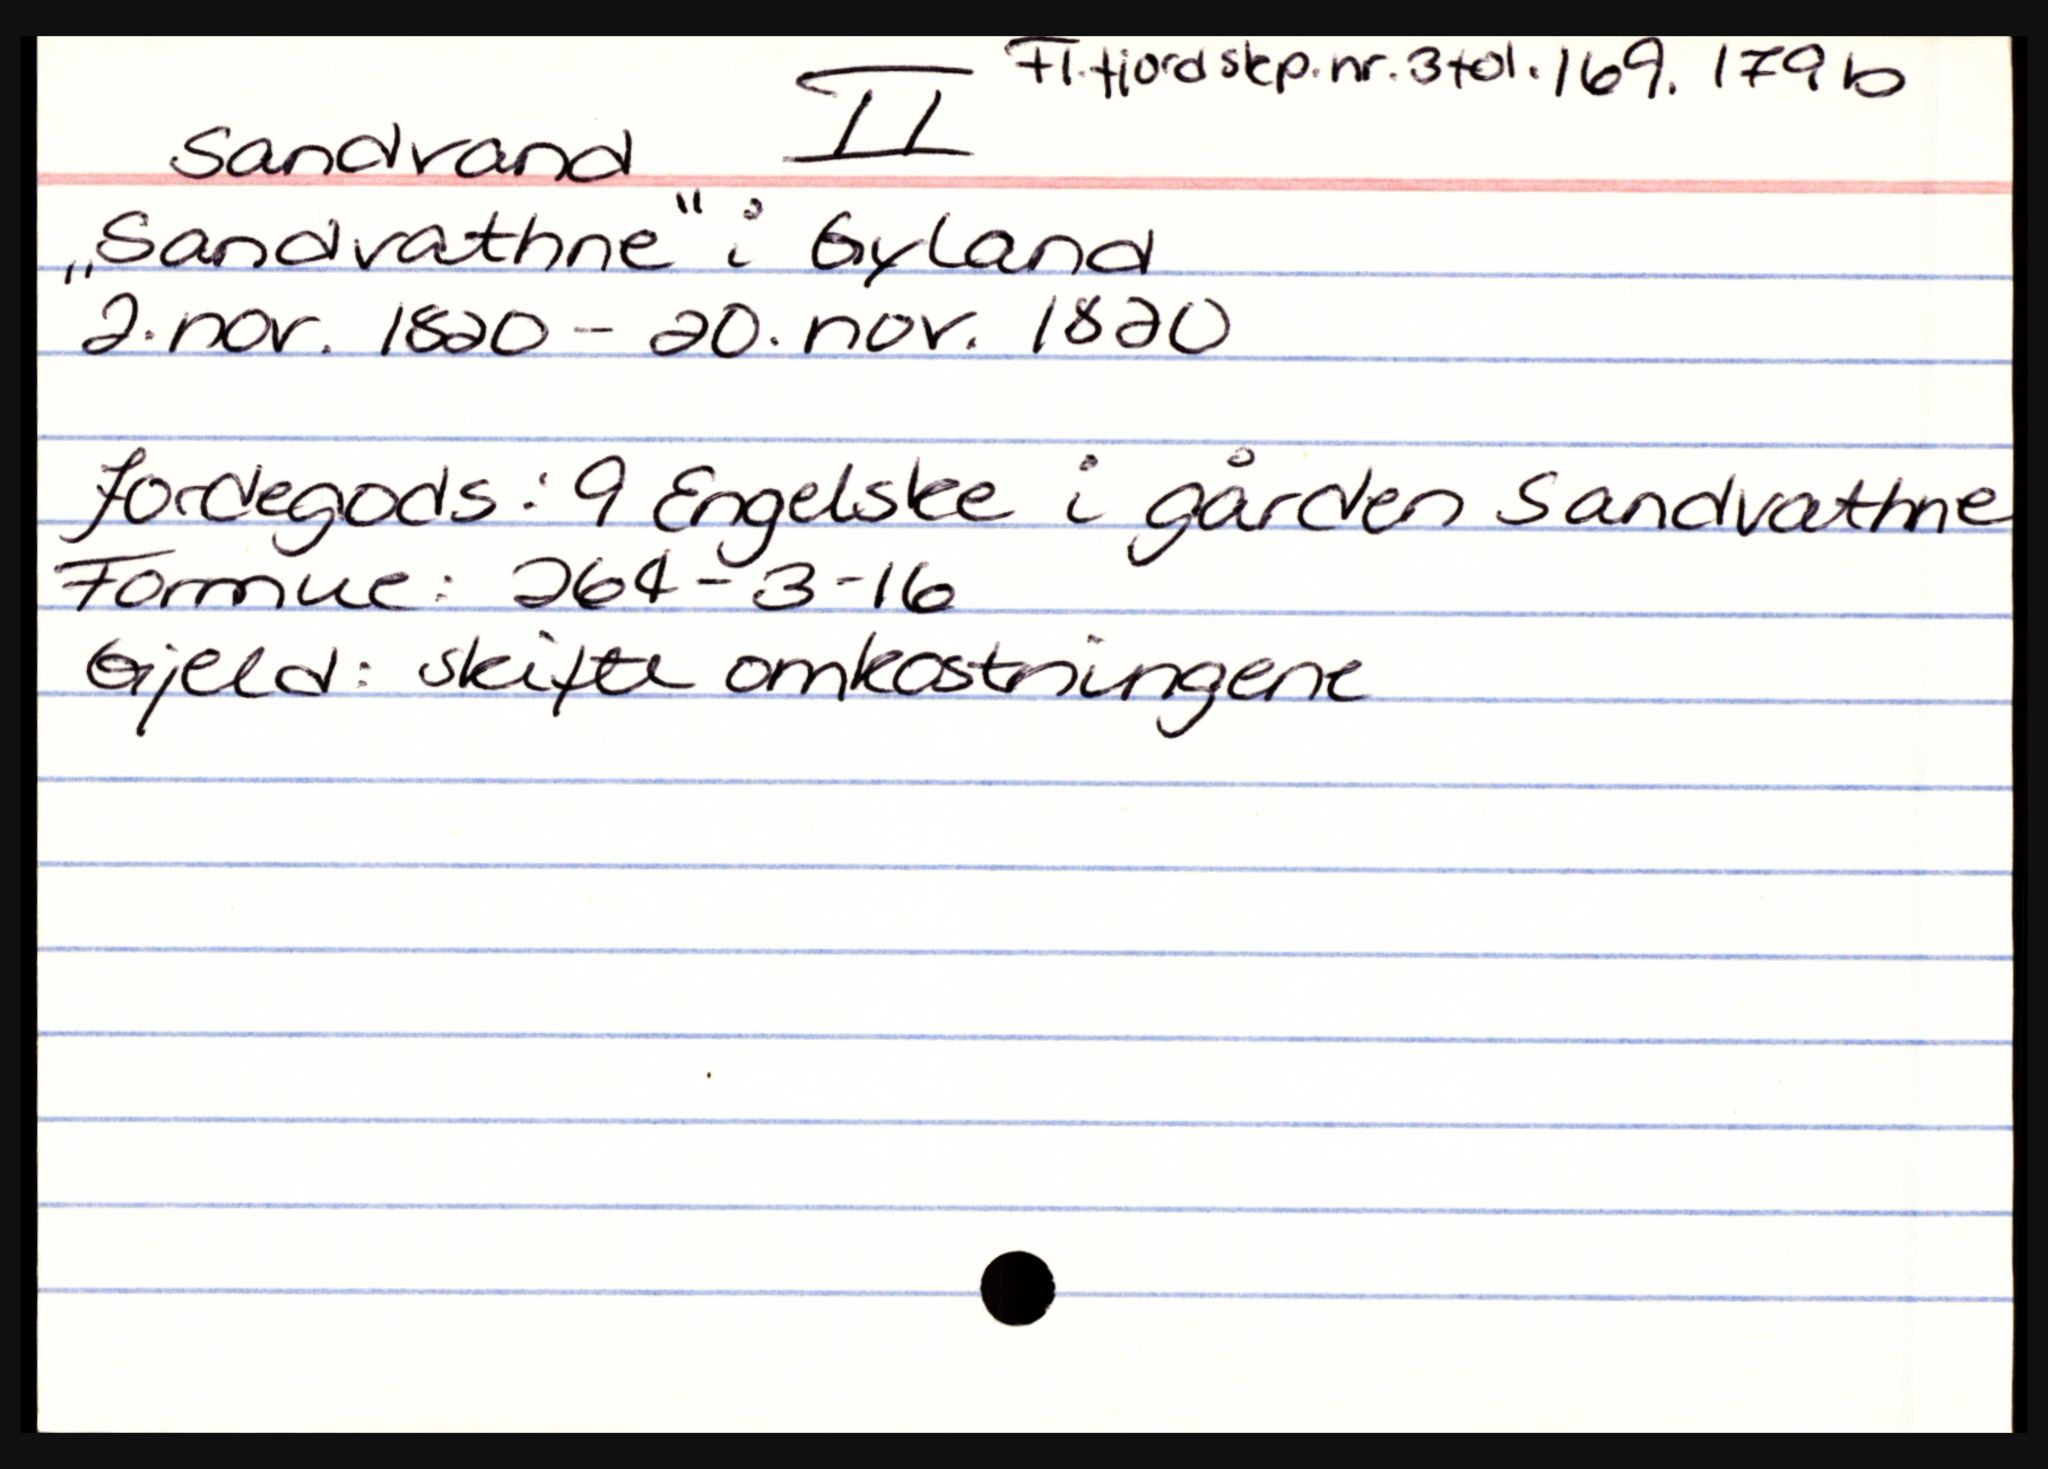 Fl.fjord skp. nr. 3 fol. 169. 179 b
Sandvand II
„Sandvathne" i Gyland
2. nov. 1820 - 20. nov. 1820
Jordegods: 9 Engelske i gården Sandvathne
Formue: 264 - 3 - 16
Gjeld: skifte omkostningene